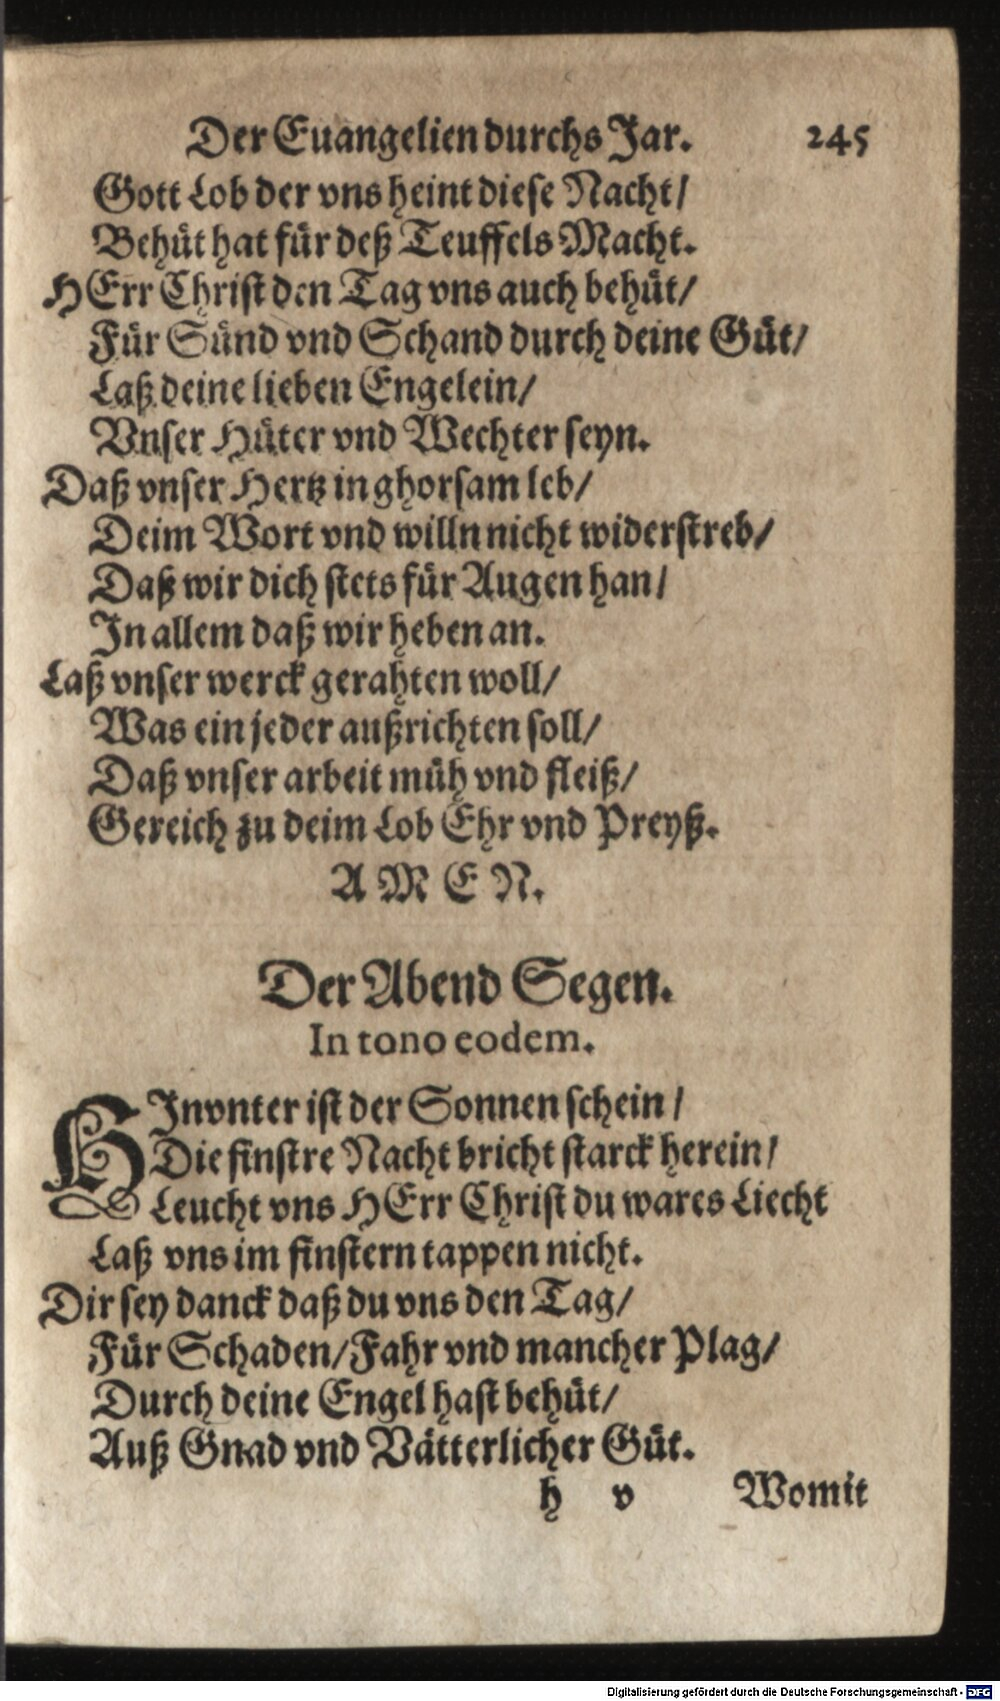 Der Euangelien durchs Jar. 245
Gott Lob der vns heint diese Nacht/
Behüt hat für deß Teuffels Macht.
HErr Christ den Tag vns auch behüt/
Für Sünd vnd Schand durch deine Güt/
Laß deine lieben Engelein/
Vnser Hüter vnd Wechter seyn.
Daß vnser Hertz in ghorsam leb/
Deim Wort vnd willn nicht widerstreb/
Daß wir dich stets für Augen han/
In allem daß wir heben an.
Laß vnser werck gerahten woll/
Was ein jeder außrichten soll/
Daß vnser arbeit müh vnd fleiß/
Gereich zu deim Lob Ehr vnd Preyß.
AMEN.
Der Abend Segen.
In tono eodem.
HInvnter ist der Sonnen schein/
Die finstre Nacht bricht starck herein/
Leucht vns HErr Christ du wares Liecht
Laß vns im finstern tappen nicht.
Dir sey danck daß du vns den Tag/
Für Schaden/Fahr vnd mancher Plag/
Durch deine Engel hast behüt/
Auß Gnad vnd Vätterlicher Güt.
h v Womit
Digitalisierung gefördert durch die Deutsche Forschungsgemeinschaft - DFG